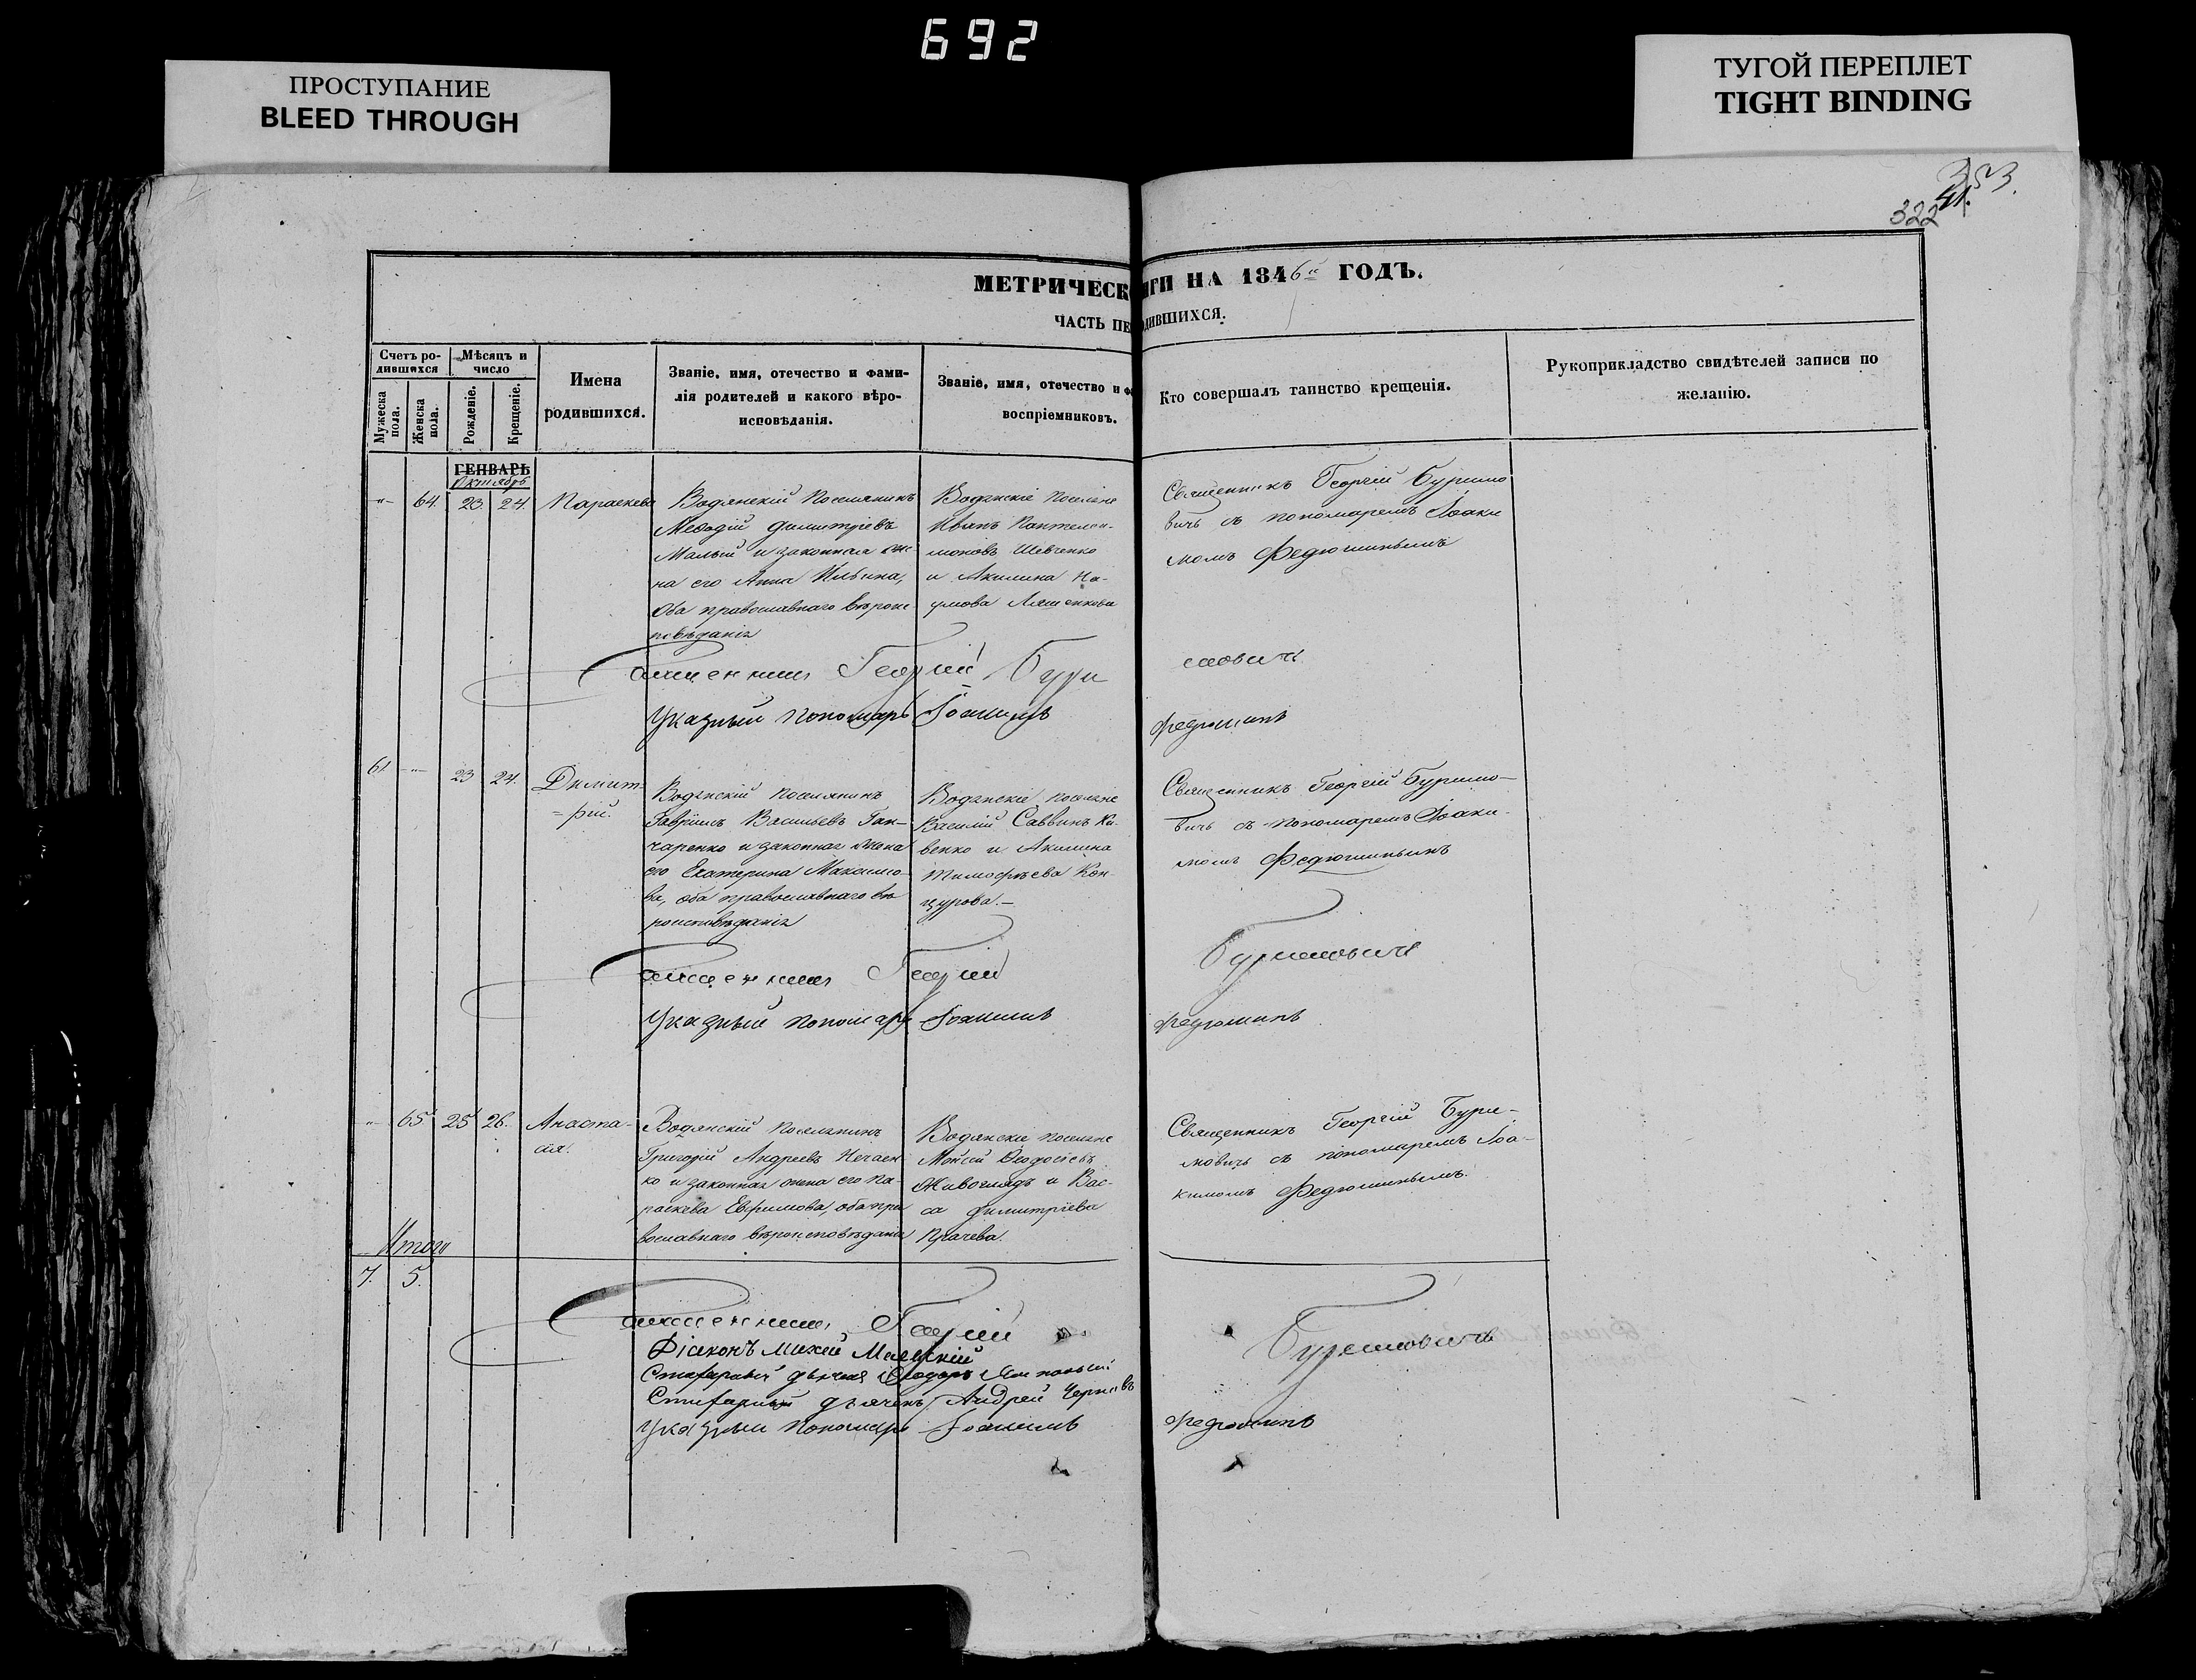 692
ПРОСТУПАНИЕ
BLEED THROUGH
ТУГОЙ ПЕРЕПЛЕТ
TIGHT BINDING
353
41.
322
МЕТРИЧЕСК
ИГИ НА 1846й ГОДЪ.
ЧАСТЬ ПЕ
ДИВШИХСЯ.
Счетъ ро-
дившихся
Мужеска
пола.
Женска
пола.
Мѣсяцъ и
число
Рожденіе.
Крещеніе.
Имена
родившихся.
Званіе, имя, отечество и фами-
лія родителей и какого вѣро-
исповѣданія.
Званіе, имя, отечество и
воспріемниковъ.
Кто совершалъ таинство крещенія.
Рукоприкладство свидѣтелей записи по
желанію.
ГЕНВАРЬ
Октябрь
-"- 64. 23. 24. Параскева
Водянскій поселянинъ
Меѳодій Димитріевъ
Малый и законная же-
на его Анна Ильина,
Оба православнаго вѣроис
повѣданія
Водянскіе поселяне
Иванъ Пантелеи-
моновъ Шевченко
и Акилина На-
умова Ляшенкова
Священникъ Георгій Буримо
вичь съ пономаремъ Іоаки
момъ Федюшинымъ
Священникъ Георгій Бури
мовичь
Указный пономарь Іоакимъ
Федюшинъ
61. -"- 23 24. Димит-
=рій.
Водянскій поселянинъ
Гавріилъ Васильевъ Ган-
чаренко и законная жена
его Екатерина Максимо-
ва, оба православнаго вѣ
роисповѣданія
Водянскіе поселяне
Василій Саввинъ Ки-
венко и Акилина
Тимофѣева Кон-
цурова.-
Священникъ Георгій Буримо-
вичь съ пономаремъ Іоаки-
момъ Федюшинымъ
Священникъ Георгій
Буримовичь
Указный пономарь Іоакимъ
Федюшинъ
-"- 65 25 26. Анаста-
сія.
Водянскій поселянинъ
Григорій Андреевъ Нечаен
ко и законная жена его Па-
раскева Евфимова, оба пра
вославнаго вѣроисповѣданія
Водянскіе поселяне
Моисей Ѳеодосіевъ
Живоглядъ и Вас-
са Димитріева
Пугачева.
Священникъ Георгій Бури-
мовичь съ пономаремъ Іоа-
кимомъ Федюшинымъ.
Итого
7. 5.
Священникъ Георгій
Буримовичь
Діаконъ
Стихарный дьячекъ
Стихарный дьячекъ Андрей
Указный пономарь Іоакимъ
Федюшинъ